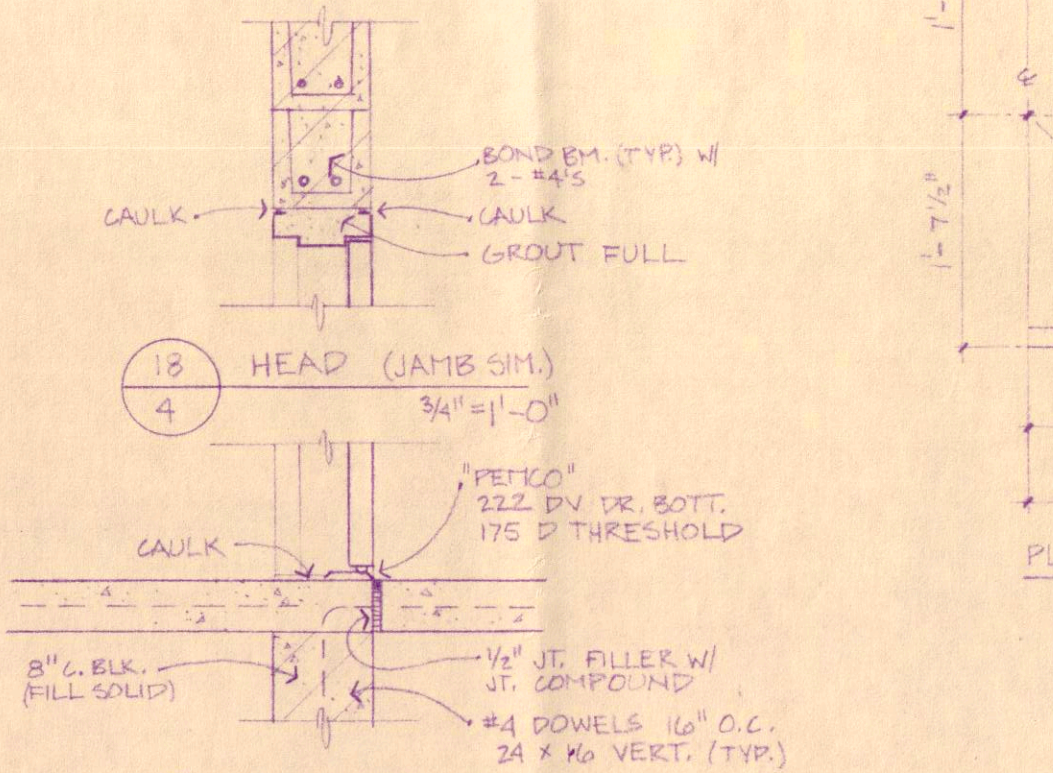 BOND BM. (TYP.) W/
2 - #4'S
CAULK
CAULK
GROUT FULL
18
4
HEAD (JAMB SIM.)
3/4" = 1'-0"
"PEMCO"
222 DV DR. BOTT.
175 D THRESHOLD
CAULK
8" C. BLK.
(FILL SOLID)
1/2" JT. FILLER W/
JT. COMPOUND
#4 DOWELS 16" O.C.
24 x 16 VERT. (TYP.)
1'-
℄
1'- 7 1/2"
PL